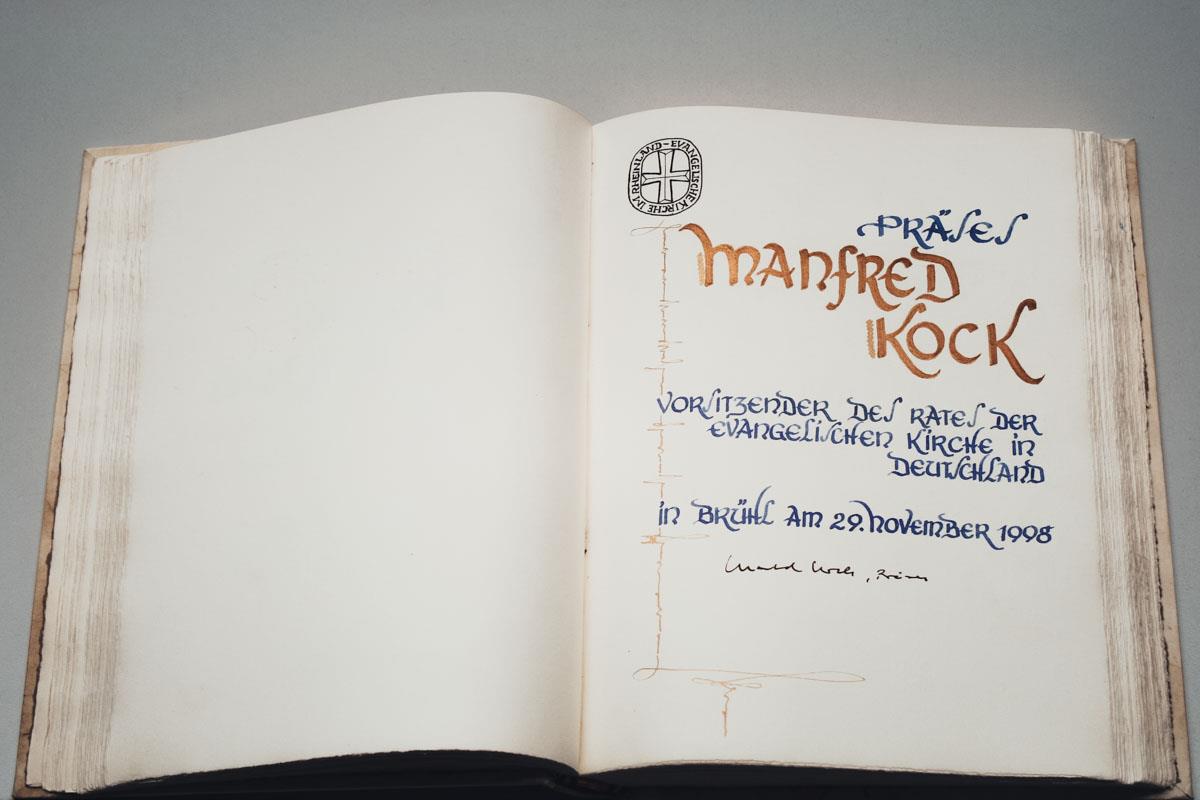 EVANGELISCHE KIRCHE IM RHEINLAND –
PRÄSES
MANFRED
KOCK
VORSITZENDER DES RATES DER
EVANGELISCHEN KIRCHE IN
DEUTSCHLAND
IN BRÜHL AM 29. NOVEMBER 1998
Manfred Kock, Präses